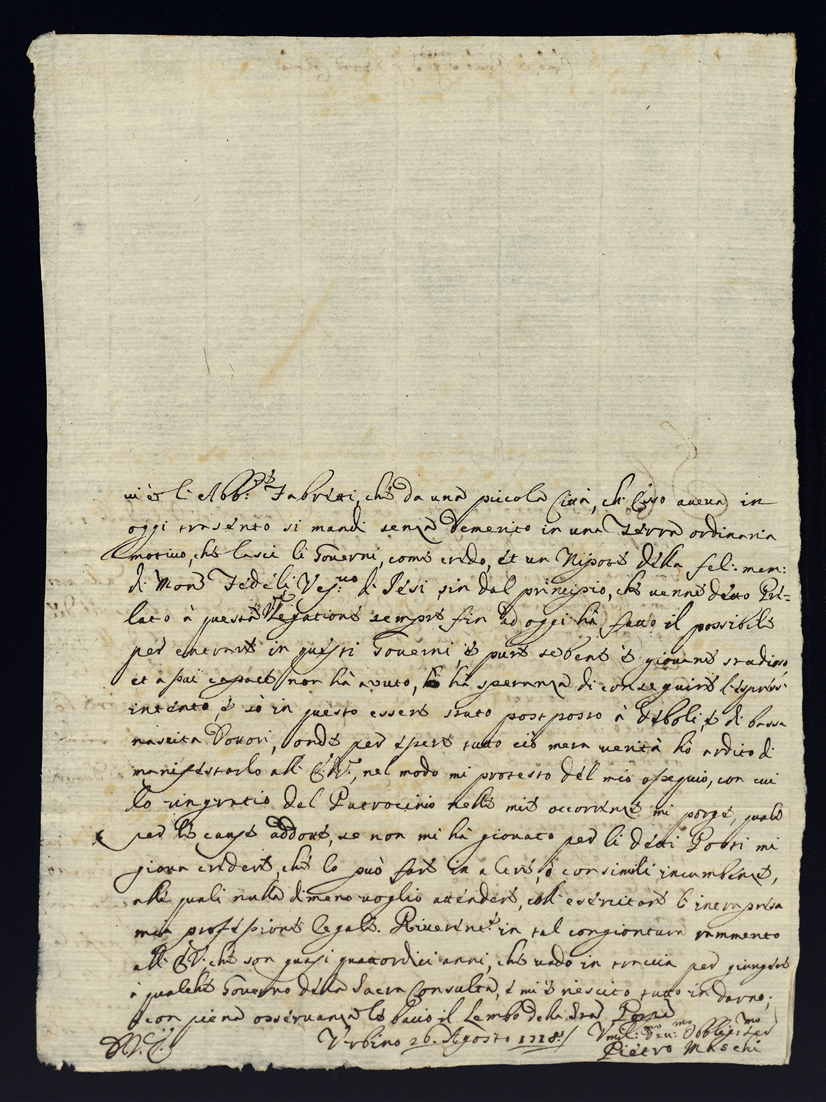 vi è l'Abb.e Fabretti, che da una piccola Città, ch'Esso aveva in
oggi trasento si mandi senza demerito in una Terra ordinaria
motivo, che lasci li Governi, come credo, et un Nipote della fel: mem:
di Mons Fedeli Vesc.vo di Jesi sin dal principio, che venne detto Pre=
lato à questa Legatione sempre sin ad oggi hà fatto il possibile
per entrare in questi Governi, è pure sebene è giovane studioso,
et assai capace non hà avuto, hà speranza di conseguire
intento, è sò in questo essere stato posposto à deboli, è di bassa
nascita Dottori, onde per essere tutto ciò mera verità hò ardito di
manifestarlo all' E.V., nel modo mi protesto del mio ossequio, con cui
lo ringratio del Patrocinio nelle mie occorrenze mi porge, quale
per le cause addotte, se non mi hà giovato per li detti Posti mi
giova credere, che lo può fare in altre, ò consimili incumbenze,
alle quali nulla di meno voglio attendere, coll'esercitare l'intrapresa
mia professione legale. Riverente in tal congiontura rammento
all' E.V. che son quasi quattordici anni, che vado in traccia per giungere
à qualche Governo della Sacra Consulta, è mi è riescito tutto indarno;
è con piena osservanza le bacio il Lembo della Sra Porpora
D.V.E. Urbino 26. Agosto 1718. Umil.mo Dev.mo Obblig.mo Ser
Pietro Maschi